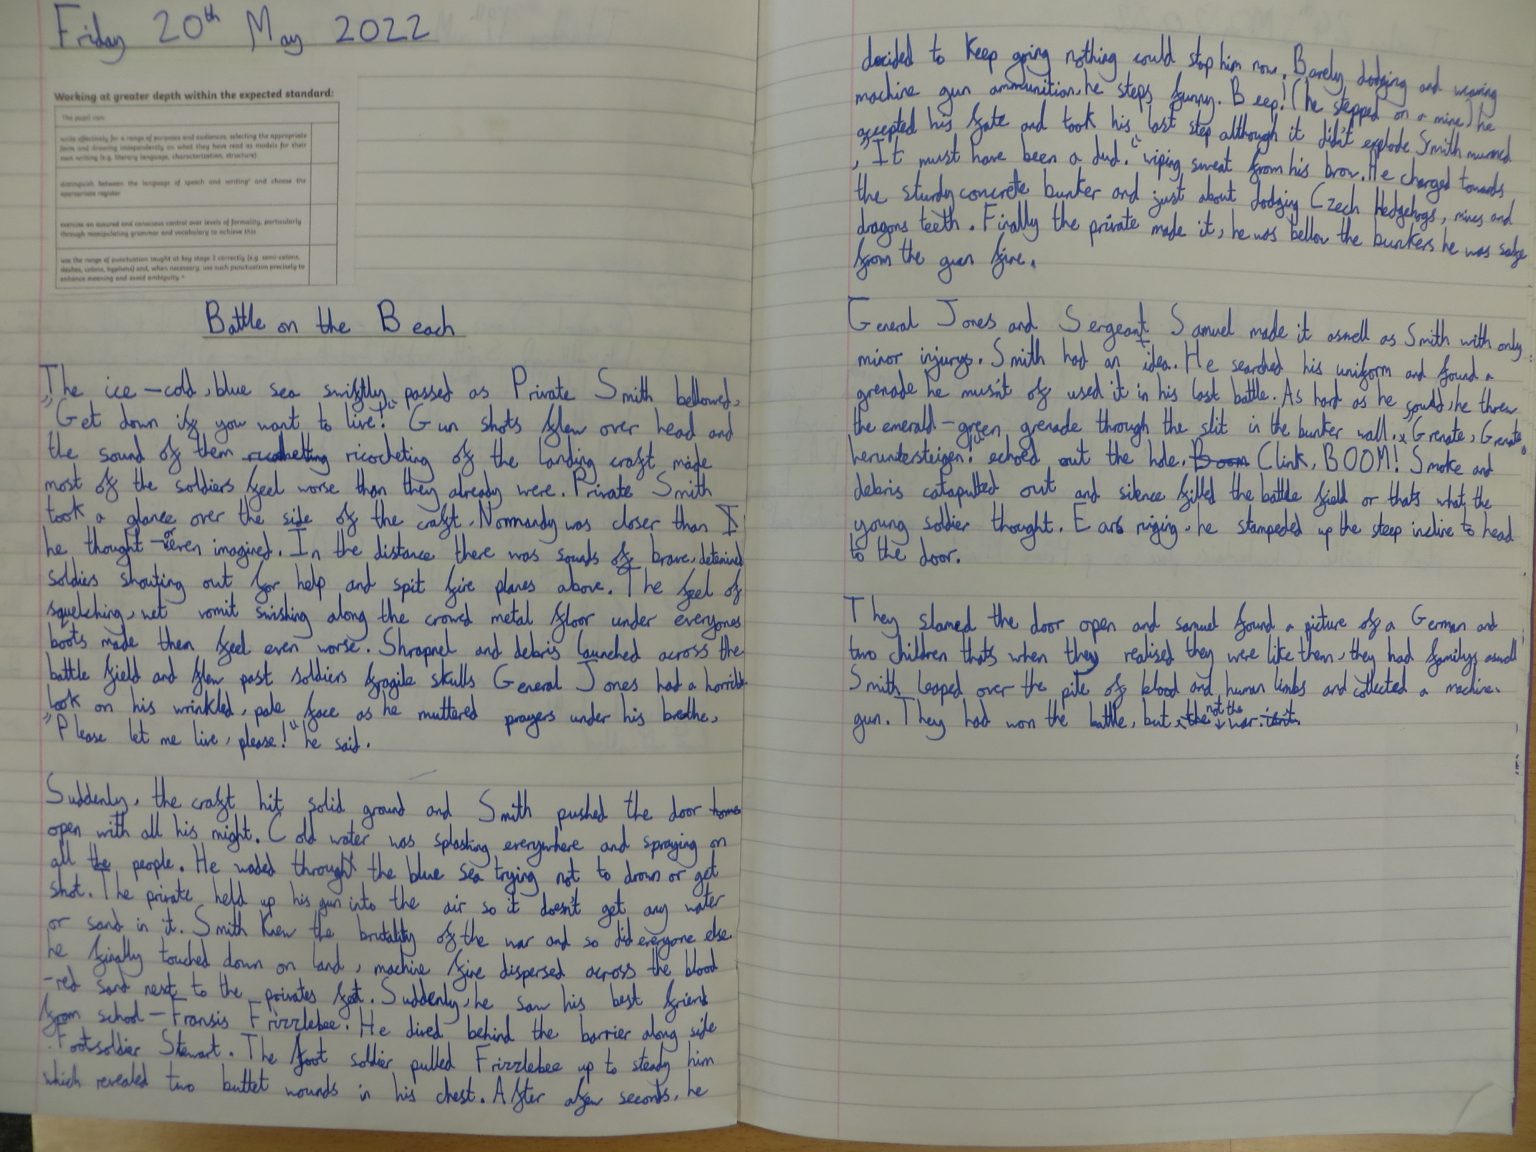 Friday 20th May 2022
Working at greater depth within the expected standard:
The pupil can:
write effectively for a range of purposes and audiences, selecting the appropriate
form and drawing independently on what they have read as models for their
own writing (e.g. literary language, characterisation, structure)
distinguish between the language of speech and writing and choose the
appropriate register
exercise an assured and conscious control over levels of formality, particularly
through manipulating grammar and vocabulary to achieve this
use the range of punctuation taught at key stage 2 correctly (e.g. semi-colons,
dashes, colons, hyphens) and, when necessary, use such punctuation precisely to
enhance meaning and avoid ambiguity.
Battle on the Beach
The ice-cold, blue sea swiftly passed as Private Smith bellowed,
"Get down if you want to live!" Gun shots flew over head and
the sound of them ricocheting of the landing craft made
most of the soldiers feel worse than they already were. Private Smith
took a glance over the side of the craft. Normandy was closer than
he thought - or even imagined. In the distance there was sounds of brave, detemined
soldies shouting out for help and spit fire planes above. The feel of
squelching, wet vomit swishing along the crowd metal floor under everyones
boots made them feel even worse. Shrapnel and debris launched across the
battle field and flew past soldiers fragile skulls General Jones had a horrible
look on his wrinkled, pale face as he muttered prayers under his breathe,
"Please let me live, please!" he said.
Suddenly, the craft hit solid ground and Smith pushed the door
open with all his might. Cold water was splashing everywhere and spraying on
all the people. He waded throught the blue sea trying not to drown or get
shot. The private held up his gun into the air so it doesn't get any water
or sand in it. Smith knew the brutality of the war and so did everyone else
he finally touched down on land, machine fire dispersed across the blood
-red sand next to the privates foot. Suddenly, he saw his best friend
from school - Fransis Frizzlebee. He dived behind the barrier along side
Footsoldier Stewart. The foot soldier pulled Frizzlebee up to steady him
which revealed two buttet wounds in his chest. After afew seconds, he
decided to keep going nothing could stop him now. Barely dodging and weaving
machine gun ammunition, he steps funny. Beep! (he stepped on a mine) he
accepted his fate and took his last step although it didn't explode. Smith murmed
, "It must have been a dud." wiping sweat from his brow. He charged towards
the sturdy concrete bunker and just about dodging Czech Hedgehogs, mines and
dragons teeth. Finally the private made it, he was bellow the bunkers he was safe
from the gun fire.
General Jones and Sergeant Samuel made it aswell as Smith with only
minor injurys. Smith had an idea. He searched his uniform and found a
grenade he musn't of used it in his last battle. As hard as he could, he threw
the emerald-green grenade through the slit in the bunker wall. "Grenate, Grenate
heruntersteigen!" echoed out the hole. Boom Clink, BOOM! Smoke and
debris catapulted out and silence filled the battle field or thats what the
young soldier thought. Ears ringing, he stampeded up the steep incline to head
to the door.
They slamed the door open and samuel found a picture of a German and
two children thats when they realised they were like them, they had familys aswell
Smith leaped over the pile of blood and human limbs and collected a machine-
gun. They had won the battle, but not the war